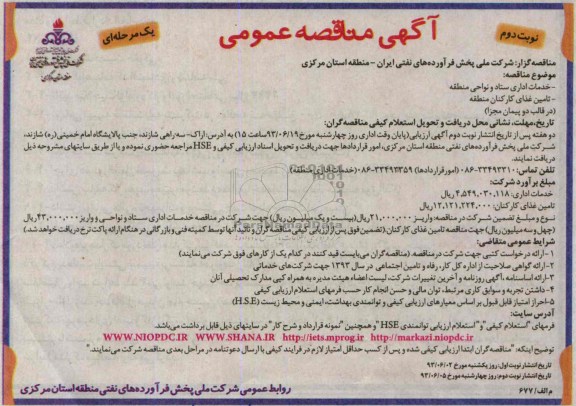 نوبت دوم
آگهی مناقصه عمومی
یک مرحله‌ای
مناقصه‌گزار: شرکت ملی پخش فرآورده‌های نفتی ایران - منطقه استان مرکزی
موضوع مناقصه:
-خدمات اداری ستاد و نواحی منطقه
-تامین غذای کارکنان منطقه
(در قالب دو پیمان مجزا)
تاریخ، مهلت، نشانی محل دریافت و تحویل استعلام کیفی مناقصه‌گران:
دو هفته پس از تاریخ انتشار نوبت دوم آگهی ارزیابی(پایان وقت اداری روز چهارشنبه مورخ ۹۳/۰۶/۱۹ساعت ۱۵) به آدرس: اراک- سه‌راهی شازند، جنب پالایشگاه امام خمینی(ره) شازند،
شرکت ملی پخش فرآورده‌های نفتی منطقه استان مرکزی، امور قراردادها جهت دریافت و تحویل اسناد ارزیابی کیفی و HSE مراجعه حضوری نموده و یا از طریق سایتهای مشروحه ذیل
دریافت نمایند.
تلفن تماس: ۳۳۴۹۲۳۱۰-۰۸۶ (امور قراردادها) ۳۳۴۹۲۳۵۹-۰۸۶ (خدمات اداری منطقه)
مبلغ برآورد شرکت:
خدمات اداری ۴,۵۴۹,۰۳۰,۱۱۸ ریال
تامین غذای کارکنان: ۱۲,۱۲۱,۲۲۴,۰۰۰ ریال
نوع و مبلغ تضمین شرکت در مناقصه: واریز ۲۱,۰۰۰,۰۰۰ ریال(بیست و یک میلیون ریال) جهت شرکت در مناقصه خدمات اداری ستاد و نواحی و واریز ۴۳,۰۰۰,۰۰۰ ریال
(چهل و سه میلیون ریال) جهت مناقصه تامین غذای کارکنان (تضمین فوق پس از ارزیابی کیفی مناقصه‌گران و تایید آنها توسط کمیته فنی و بازرگانی در هنگام ارائه پاکت نرخ دریافت خواهد شد.)
شرایط عمومی متقاضی:
۱-ارائه درخواست کتبی جهت شرکت در مناقصه. (مناقصه‌گران می‌بایست قید کنند در کدام یک از کارهای فوق شرکت می‌نمایند)
۲-ارائه گواهی صلاحیت از اداره کل کار، رفاه و تامین اجتماعی در سال ۱۳۹۳ جهت شرکت‌های خدماتی
۳-ارائه اساسنامه، آگهی روزنامه و آخرین تغییرات شرکت، لیست اعضاء هیئت مدیره به همراه کپی مدارک تحصیلی آنان
۴-داشتن تجربه و سوابق کاری مرتبط، توان مالی و حسن انجام کار حسب فرمهای استعلام ارزیابی کیفی
۵-احراز امتیاز قابل قبول بر اساس معیارهای ارزیابی کیفی و توانمندی بهداشت، ایمنی و محیط زیست (H.S.E)
آدرس سایت:
فرمهای "استعلام کیفی" و "استعلام ارزیابی توانمندی HSE" و همچنین "نمونه قرارداد و شرح کار" در سایتهای ذیل قابل برداشت می‌باشد.
WWW.NIOPDC.IR WWW.SHANA.IR http://iets.mporg.ir http://markazi.niopdc.ir
توضیح اینکه: "مناقصه‌گران ابتدا ارزیابی کیفی شده و پس از کسب حداقل امتیاز لازم در فرایند کیفی با ارسال دعوتنامه در مراحل بعدی مناقصه شرکت می‌نمایند."
تاریخ انتشار نوبت اول: روز یکشنبه مورخ ۹۳/۰۶/۰۲
تاریخ انتشار نوبت دوم: روز چهارشنبه مورخ ۹۳/۰۶/۰۵
م الف/ ۶۷۷
روابط عمومی شرکت ملی پخش فرآورده‌های نفتی منطقه استان مرکزی